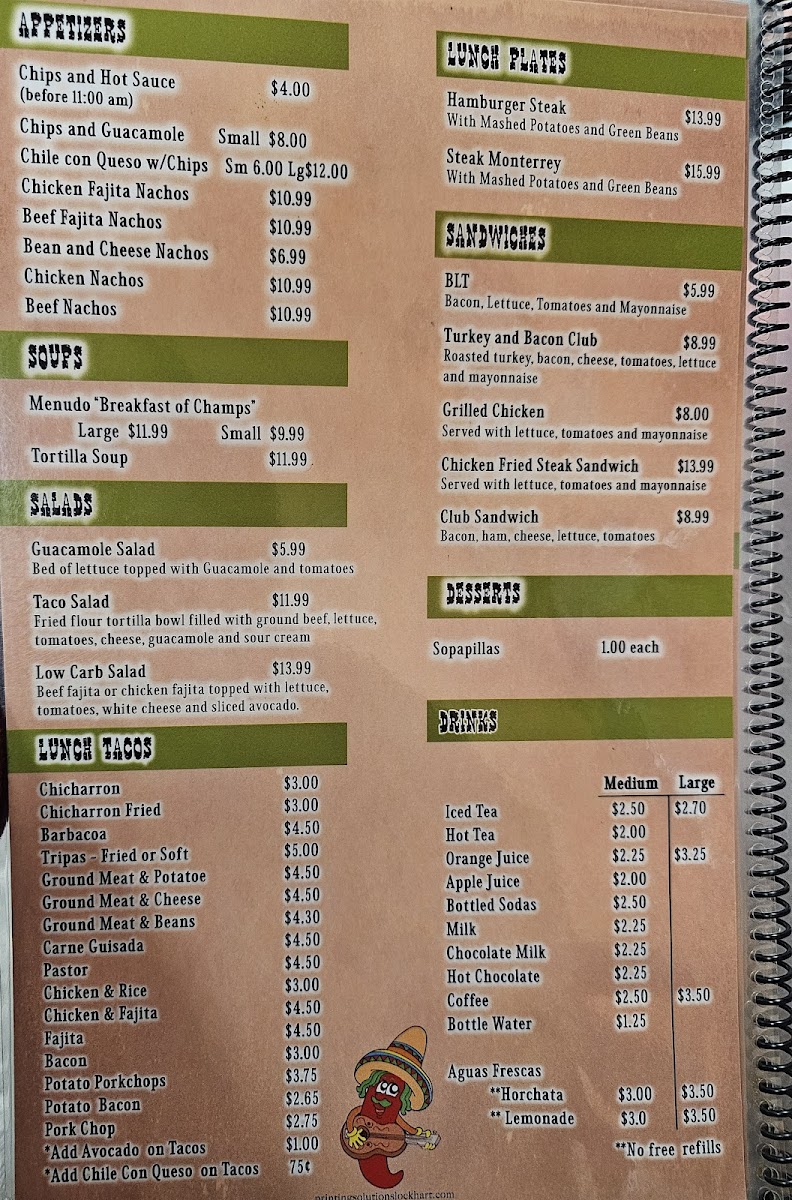 APPETIZERS
Chips and Hot Sauce $4.00
(before 11:00 am)
Chips and Guacamole Small $8.00
Chile con Queso w/Chips Sm 6.00 Lg$12.00
Chicken Fajita Nachos $10.99
Beef Fajita Nachos $10.99
Bean and Cheese Nachos $6.99
Chicken Nachos $10.99
Beef Nachos $10.99
SOUPS
Menudo "Breakfast of Champs"
Large $11.99 Small $9.99
Tortilla Soup $11.99
SALADS
Guacamole Salad $5.99
Bed of lettuce topped with Guacamole and tomatoes
Taco Salad $11.99
Fried flour tortilla bowl filled with ground beef, lettuce,
tomatoes, cheese, guacamole and sour cream
Low Carb Salad $13.99
Beef fajita or chicken fajita topped with lettuce,
tomatoes, white cheese and sliced avocado.
LUNCH TACOS
Chicharron $3.00
Chicharron Fried $3.00
Barbacoa $4.50
Tripas - Fried or Soft $5.00
Ground Meat & Potatoe $4.50
Ground Meat & Cheese $4.50
Ground Meat & Beans $4.30
Carne Guisada $4.50
Pastor $4.50
Chicken & Rice $3.00
Chicken & Fajita $4.50
Fajita $4.50
Bacon $3.00
Potato Porkchops $3.75
Potato Bacon $2.65
Pork Chop $2.75
*Add Avocado on Tacos $1.00
*Add Chile Con Queso on Tacos 75¢
LUNCH PLATES
Hamburger Steak $13.99
With Mashed Potatoes and Green Beans
Steak Monterrey $15.99
With Mashed Potatoes and Green Beans
SANDWICHES
BLT $5.99
Bacon, Lettuce, Tomatoes and Mayonnaise
Turkey and Bacon Club $8.99
Roasted turkey, bacon, cheese, tomatoes, lettuce
and mayonnaise
Grilled Chicken $8.00
Served with lettuce, tomatoes and mayonnaise
Chicken Fried Steak Sandwich $13.99
Served with lettuce, tomatoes and mayonnaise
Club Sandwich $8.99
Bacon, ham, cheese, lettuce, tomatoes
DESSERTS
Sopapillas 1.00 each
DRINKS
Medium Large
Iced Tea $2.50 $2.70
Hot Tea $2.00
Orange Juice $2.25 $3.25
Apple Juice $2.00
Bottled Sodas $2.50
Milk $2.25
Chocolate Milk $2.25
Hot Chocolate $2.25
Coffee $2.50 $3.50
Bottle Water $1.25
Aguas Frescas
**Horchata $3.00 $3.50
** Lemonade $3.0 $3.50
**No free refills
printingsolutionslockhart.com